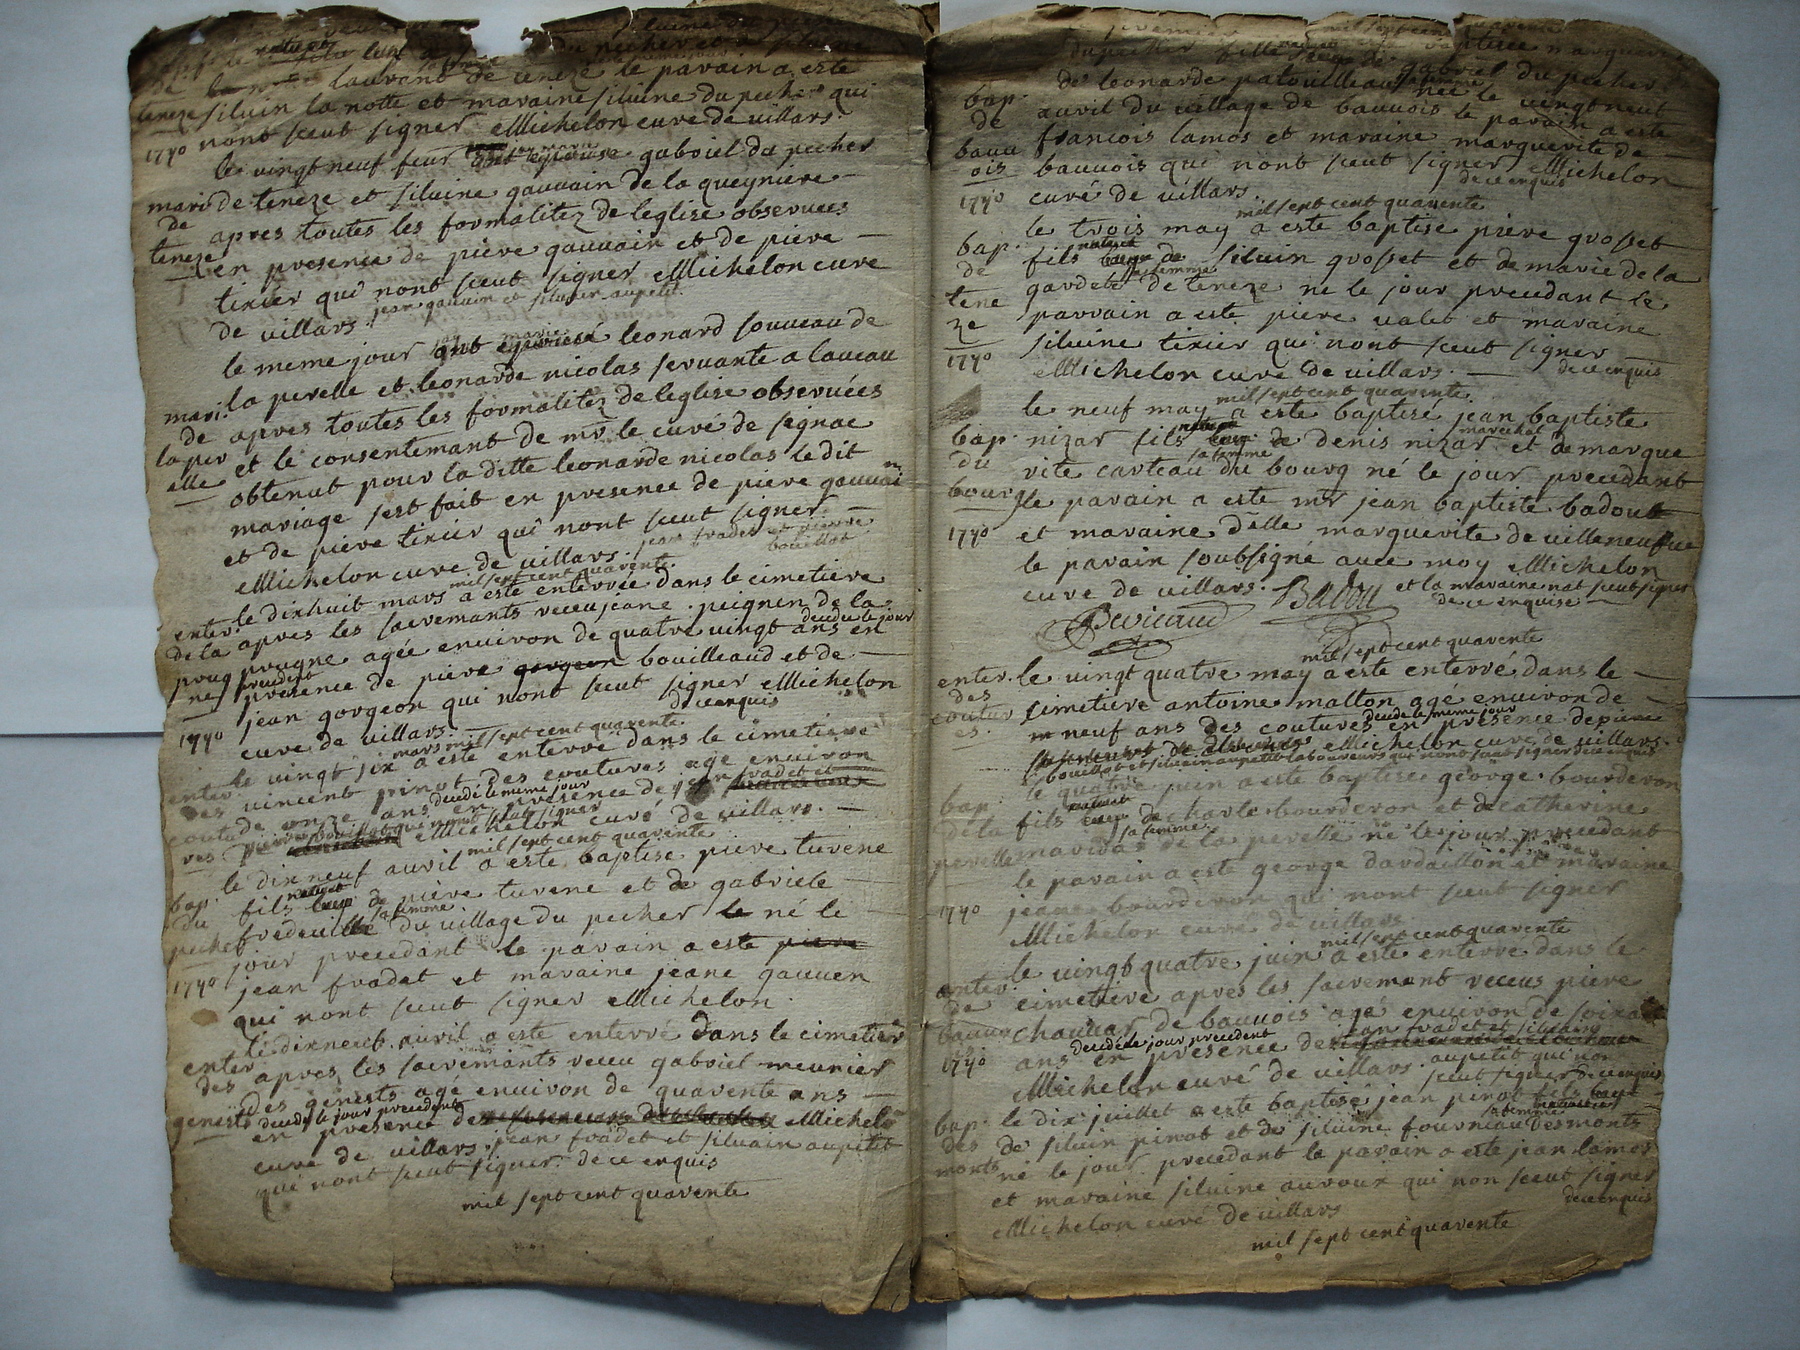 bap.
de
teneze
1740
lauvant de teneze le parain a este
siluin la notte et maraine siluine du pecher qui
nont sceut signer Michelon curé de villars.
le vingt neuf feur gabriel du pecher
mari de teneze et siluine gauuain de la queyriere
de
teneze
apres toutes les formalitez de leglise obseruees
en presence de piere gauuain et de piere
tixier qui nont sceut signer Michelon cure
de villars. jean gauuain et siluain aupetit.
le meme jour ont marié leonard souueau de
mari. la perelle et leonarde nicolas seruante a laueau
de
la per
elle
apres toutes les formalitez de leglise obseruées
et le consentemant de mr le curé de signac
obtenut pour la ditte leonarde nicolas le dit
mariage sest fait en presence de piere gauuain
et de piere tixier qui nont sceut signer
jean fradet et pierre
bouillot
Michelon cure de villars.
mil sept cent quarente
le dixhuit mars a este enterrée dans le cimetiere
enter.
de la
proug
ne
1740
apres les sacremants receu jeane peignen de la
decedee le jour
prougne agée enuiron de quatre vingt ans en
precedent
presence de piere gorgeon bouilleaud et de
jean gorgeon qui nont sceut signer Michelon
de ce enquis
cure de villars.
mars mil sept cent quarente
le vingt six a este enterré dans le cimetiere
enter.
des
coutu
res
vincent pinot des coutures age enuiron
decedé le meme jour
de onze ans en presence de jean fradet et
pierre bouillot qui nont sceut signer
Michelon curé de villars.
mil sept cent quarente
le dixneuf auril a este baptisé piere turene
bap.
du
pecher
1740
naturel
fils de piere turene et de gabriele
sa femme
fredeuille du village du pecher le né le
jour precedant le parain a este piere
jean fradet et maraine jeane gauuen
qui nont sceut signer Michelon.
le dixneuf auril a este enterré dans le cimetiere
enter
des
genests
apres les sacremants receu gabriel meunier
des genests agé enuiron de quarente ans
decedé le jour precedent
en presence de Michelon
cure de villars. jean fradet et siluain aupetit
qui nont sceut signer de ce enquis
mil sept cent quarente
mil sept cent quarente
baptisee marguerite
du pecher fille de gabriel du pecher
bap.
de
bauu
ois
1740
de leonarde patouilleau sa femme née le vingt neuf
auril du village de bauuois le parain a este
francois lamos et maraine marguerite de
bauuois qui nont sceut signer Michelon
de ce enquis
curé de villars
mil sept cent quarente
le trois may a este baptisé piere grosset
bap.
de
tene
ze
1740
naturel
fils de siluin grosset et de marie de la
sa femme
gardete de teneze né le jour precedant le
parrain a este piere valet et maraine
siluine tixier qui nont sceut signer
de ce enquis
Michelon cure de villars.
mil sept cent quarente
le neuf may a este baptisé jean baptiste
bap.
du
bourg
1740
naturel
marechal
nizar fils de denis nizar et de margue
sa femme
rite carteau du bourg né le jour precedant
le parain a este mr jean baptiste badout
et maraine delle marguerite de villeneufue
le parain soubsigné auec moy Michelon
cure de villars. Badou et la maraine nat sceut signer
de ce enquise
mil sept cent quarente
enter.
des
coutur
es.
le vingt quatre may a este enterré dans le
cimetiere antoine malton age enuiron de
decedé le meme jour
neuf ans des coutures en presence de piere
Michelon cure de villars.
bouillot et siluain aupetit laboureurs qui nont sceut signer de ce enquis
le quatre juin a este baptisé george bourderon
bap.
de la
perelle
1740
naturel
fils de charle bourderon et de catherine
sa femme
de la perelle né le jour precedant
le parain a este george dardaillon et maraine
jeane bourderon qui nont sceut signer
Michelon cure de villars.
mil sept cent quarente
le vingt quatre juin a este enterré dans le
enter.
de
bauuois
1740
cimetiere apres les sacremant receus piere
chauuar de bauuois agé enuiron de soixante
decedé le jour precedent
ans en presence de jean fradet et siluain
aupetit qui non
sceut signer de ce enquis
Michelon curé de villars.
bap.
des
monts
le dix juillet a este baptisé jean pinot fils
sa femme
de siluin pinot et de siluine fourneau des monts
né le jour precedant le parain a este jean lamos
et maraine siluine auroux qui non sceut signer
de ce enquis
Michelon curé de villars
mil sept cent quarente